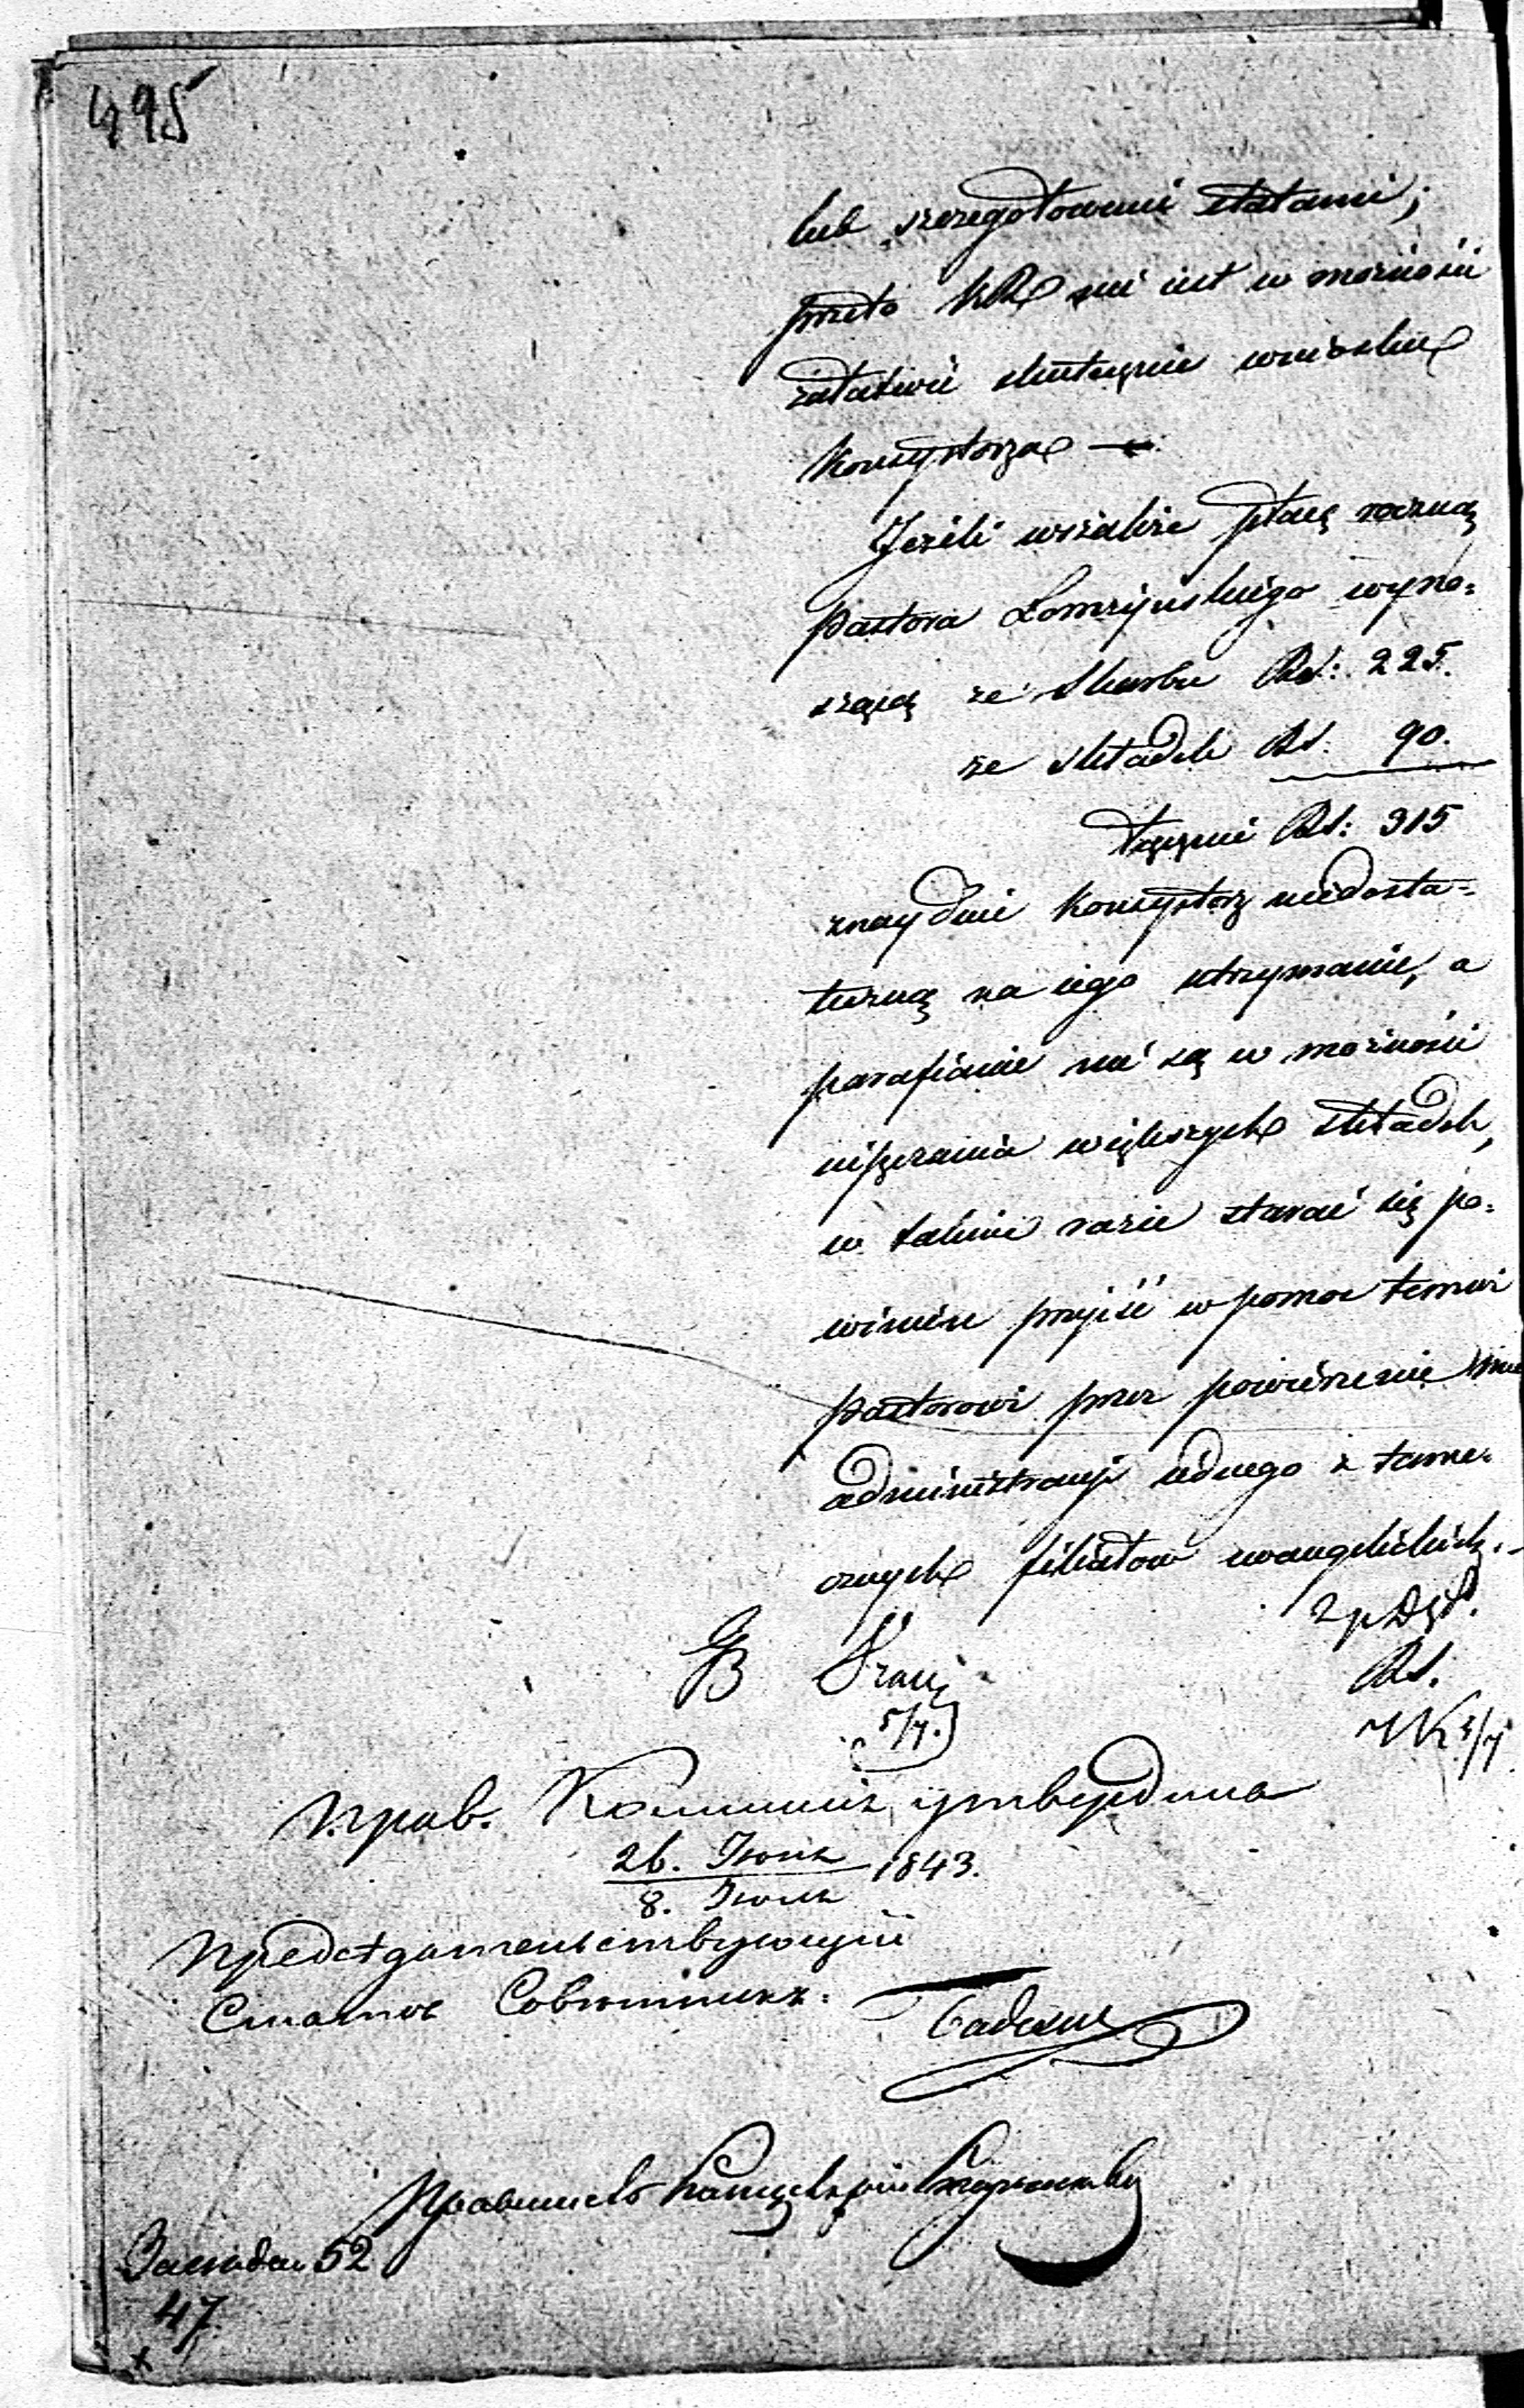 495
lub szczegółowemi etatami;
przeto KR nie iest w możności
załatwić skutecznie wniosku
Konsystorza —
Jeżeli wszakże płacę roczną
Pastora Łomżyńskiego wyno=
szącą ze Skarbu Rs: 225.
ze składek Rs. 90.
łącznie Rs: 315
znaydzie Konsystorz niedosta=
teczną na iego utrzymanie, a
parafianie nie są w możności
uiszczania większych składek,
w takim razie starać się po=
winien przyjść w pomoc temuż
Pastorowi przez powierzenie mu
administracyi iednego z tame=
cznych filiałów ewangelickich.
Rs.
5/7.
Прав. Коммиссія утвердила
26. Іюня / 8. Іюля 1843.
Председательствующій
Статск Советникъ.
Правитель Канцеляріи
Заседан 52
47